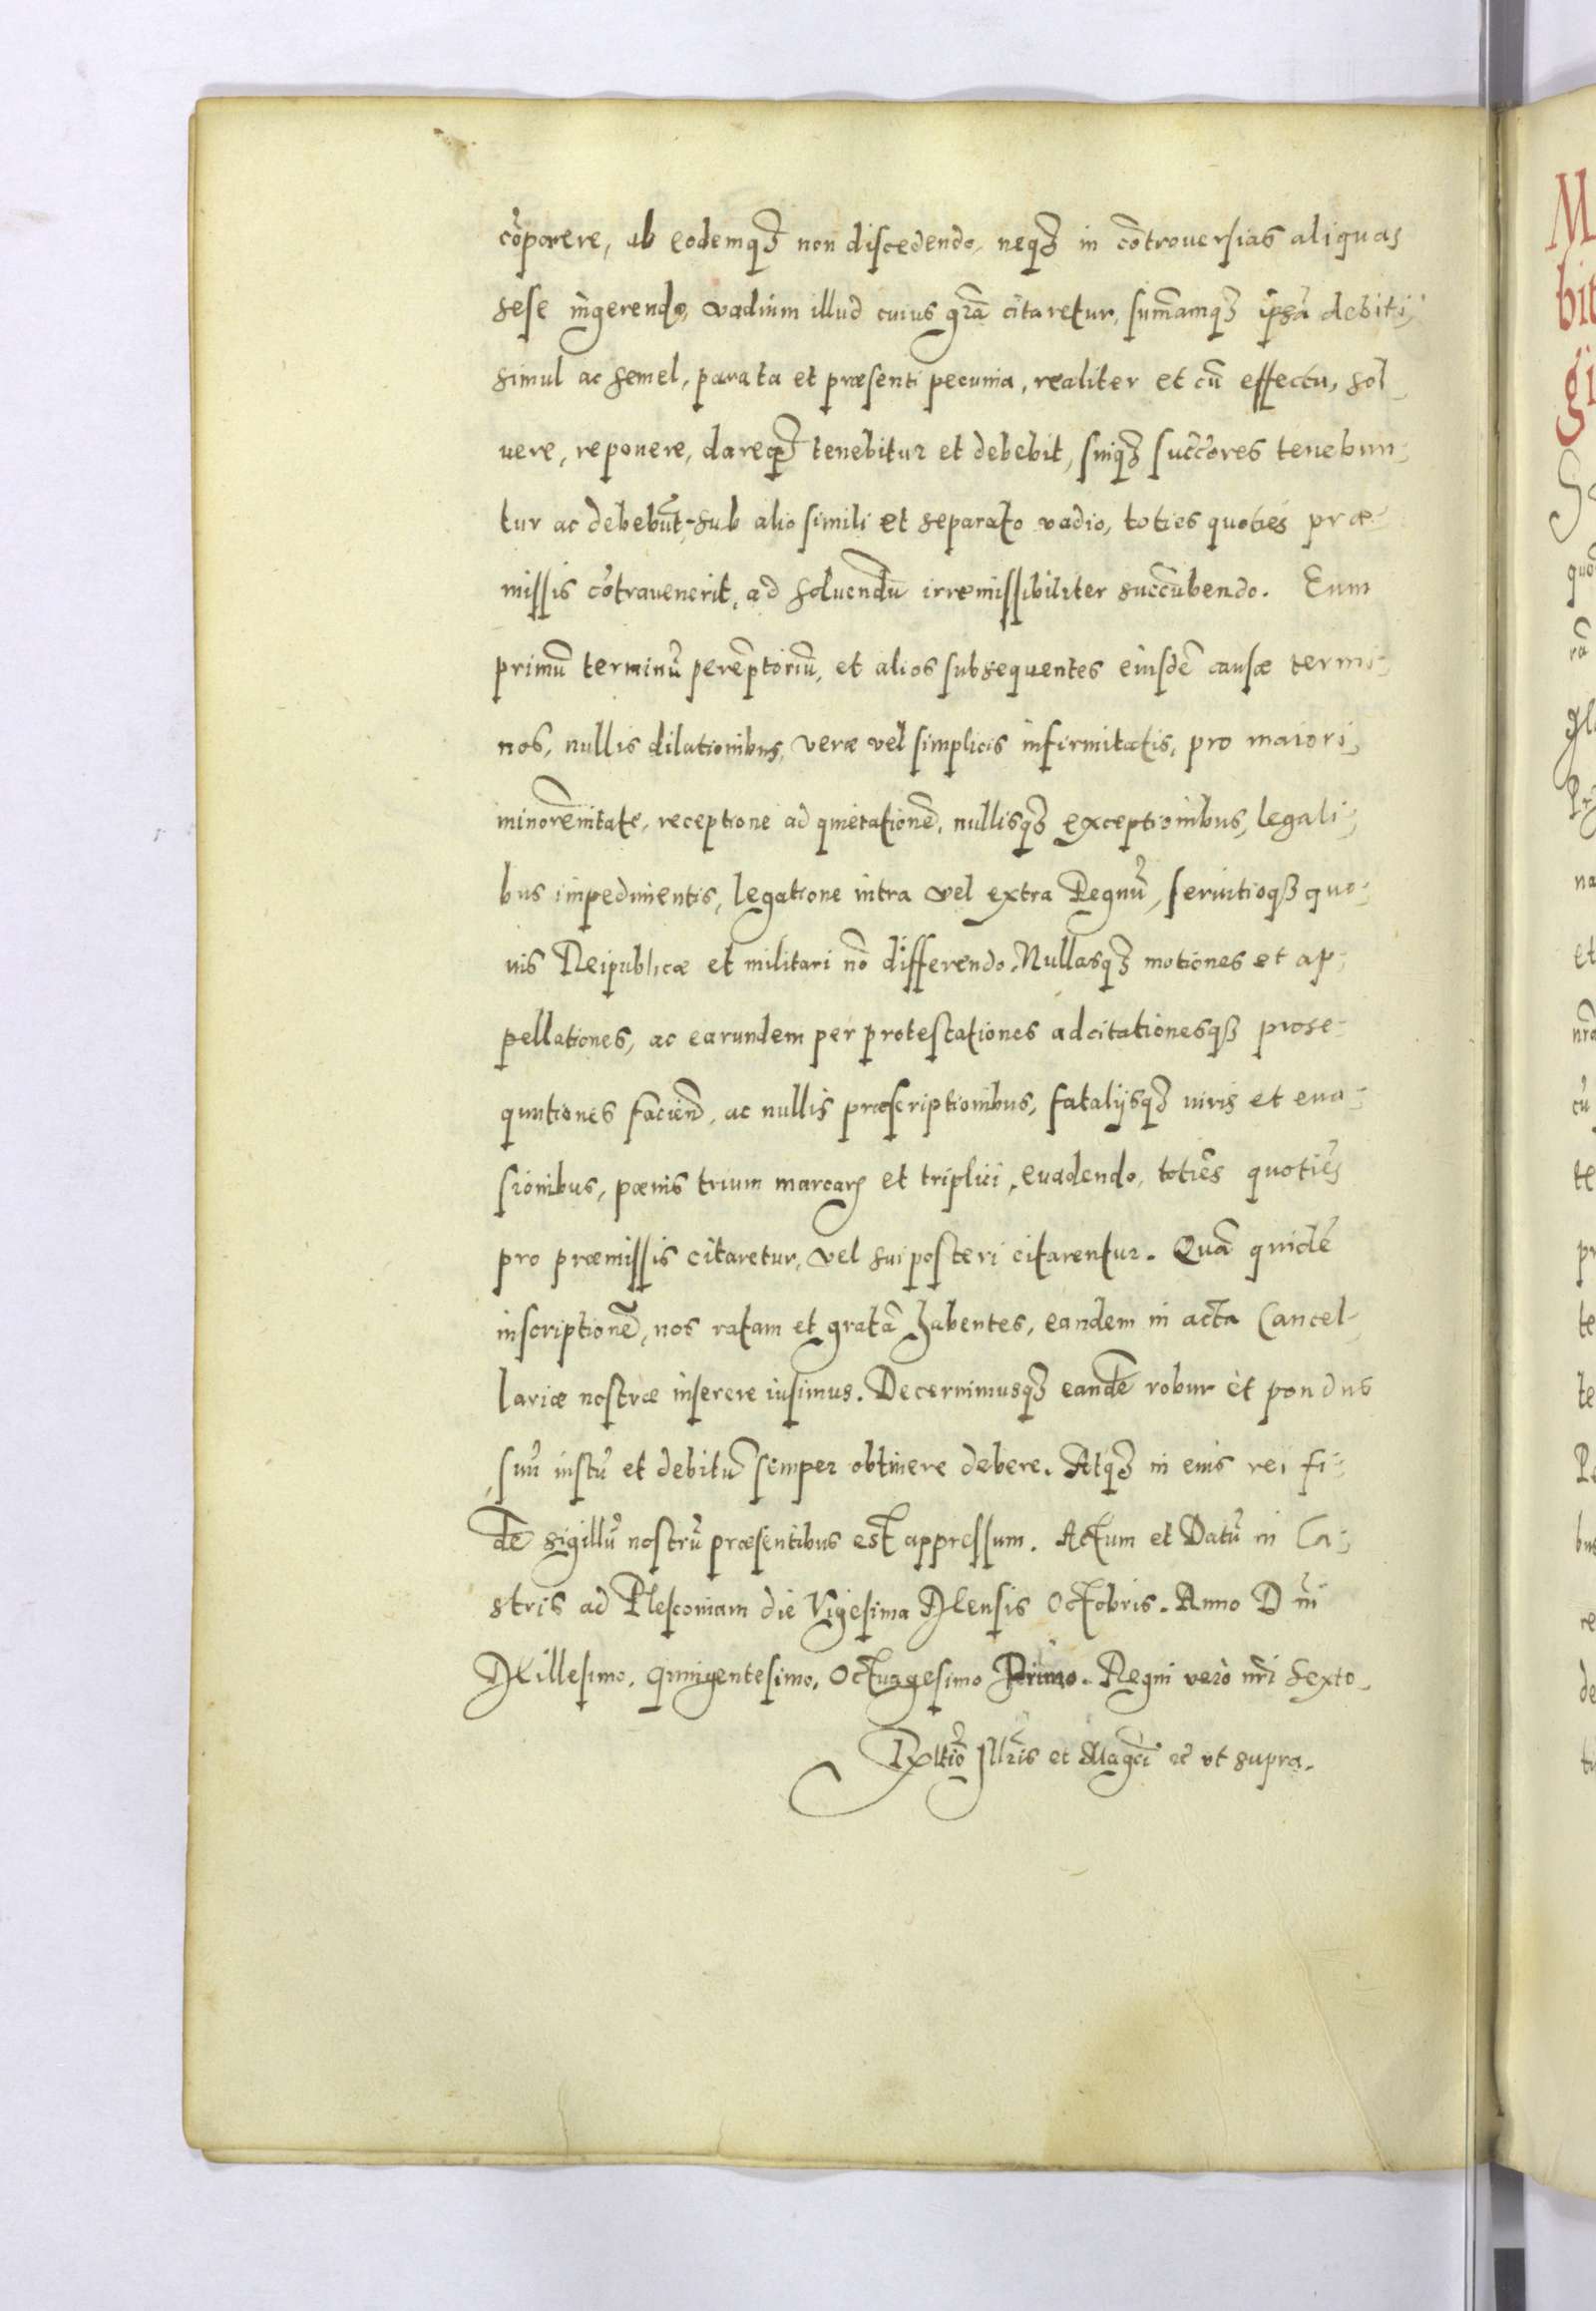 cõparere, ab eodemq₃ non discedendo, neq₃ in cõtrouersias aliquas
sese ingerendo, vadium illud cuius grã citaretur, sum̃amq₃ ipsã debiti,
simul ac semel, parata et præsenti pecunia, realiter et cũ effectu, sol-
uere, reponere, dareq₃ tenebitur et debebit, suiq₃ succ̃ores tenebun-
tur ac debebũt, sub alio simili et separato vadio, toties quoties præ-
missis cõtrauenerit, ad soluendũ irremissibiliter succũbendo. Eum
primũ terminũ perẽptoriũ, et alios subsequentes eiusdẽ causæ termi-
nos, nullis dilationibus, veræ vel simplicis infirmitatis, pro maiori,
minorẽnitate, receptione ad quietationẽ, nullisq₃ exceptionibus, legali-
bus impedimentis, legatione intra vel extra Regnũ, seruitioq₃ quo-
uis Reipublicæ et militari nõ differendo. Nullasq₃ motiones et ap-
pellationes, ac earundem per protestationes adcitationesq₃ prose-
quutiones faciend̃, ac nullis præscriptionibus, fatalijsq₃ iuris et eua-
sionibus, pœnis trium marcarũ et triplici, euadendo, toties quoties
pro præmissis citaretur, vel sui posteri citarentur. Quã quidẽ
inscriptionẽ, nos ratam et gratã habentes, eandem in acta Cancel-
lariæ nostræ inserere iusimus. Decernimusq₃ eandẽ robur et pondus
suũ iustũ et debitũ semper obtinere debere. Atq₃ in eius rei fi-
dẽ sigillũ nostrũ præsentibus est appressum. Actum et Datũ in Ca-
stris ad Plesconiam die Vigesima Mensis Octobris. Anno Dñi
Millesimo, Quingentesimo, Octuagesimo Primo. Regni vero nr̃i Sexto.
Rel̃tio Ill̃ris et Mag̃ci ec̃ vt supra.
M
bit
gi
quo
rã
na
et
nrã
cũ
te
pr
te
te
bus
re
de